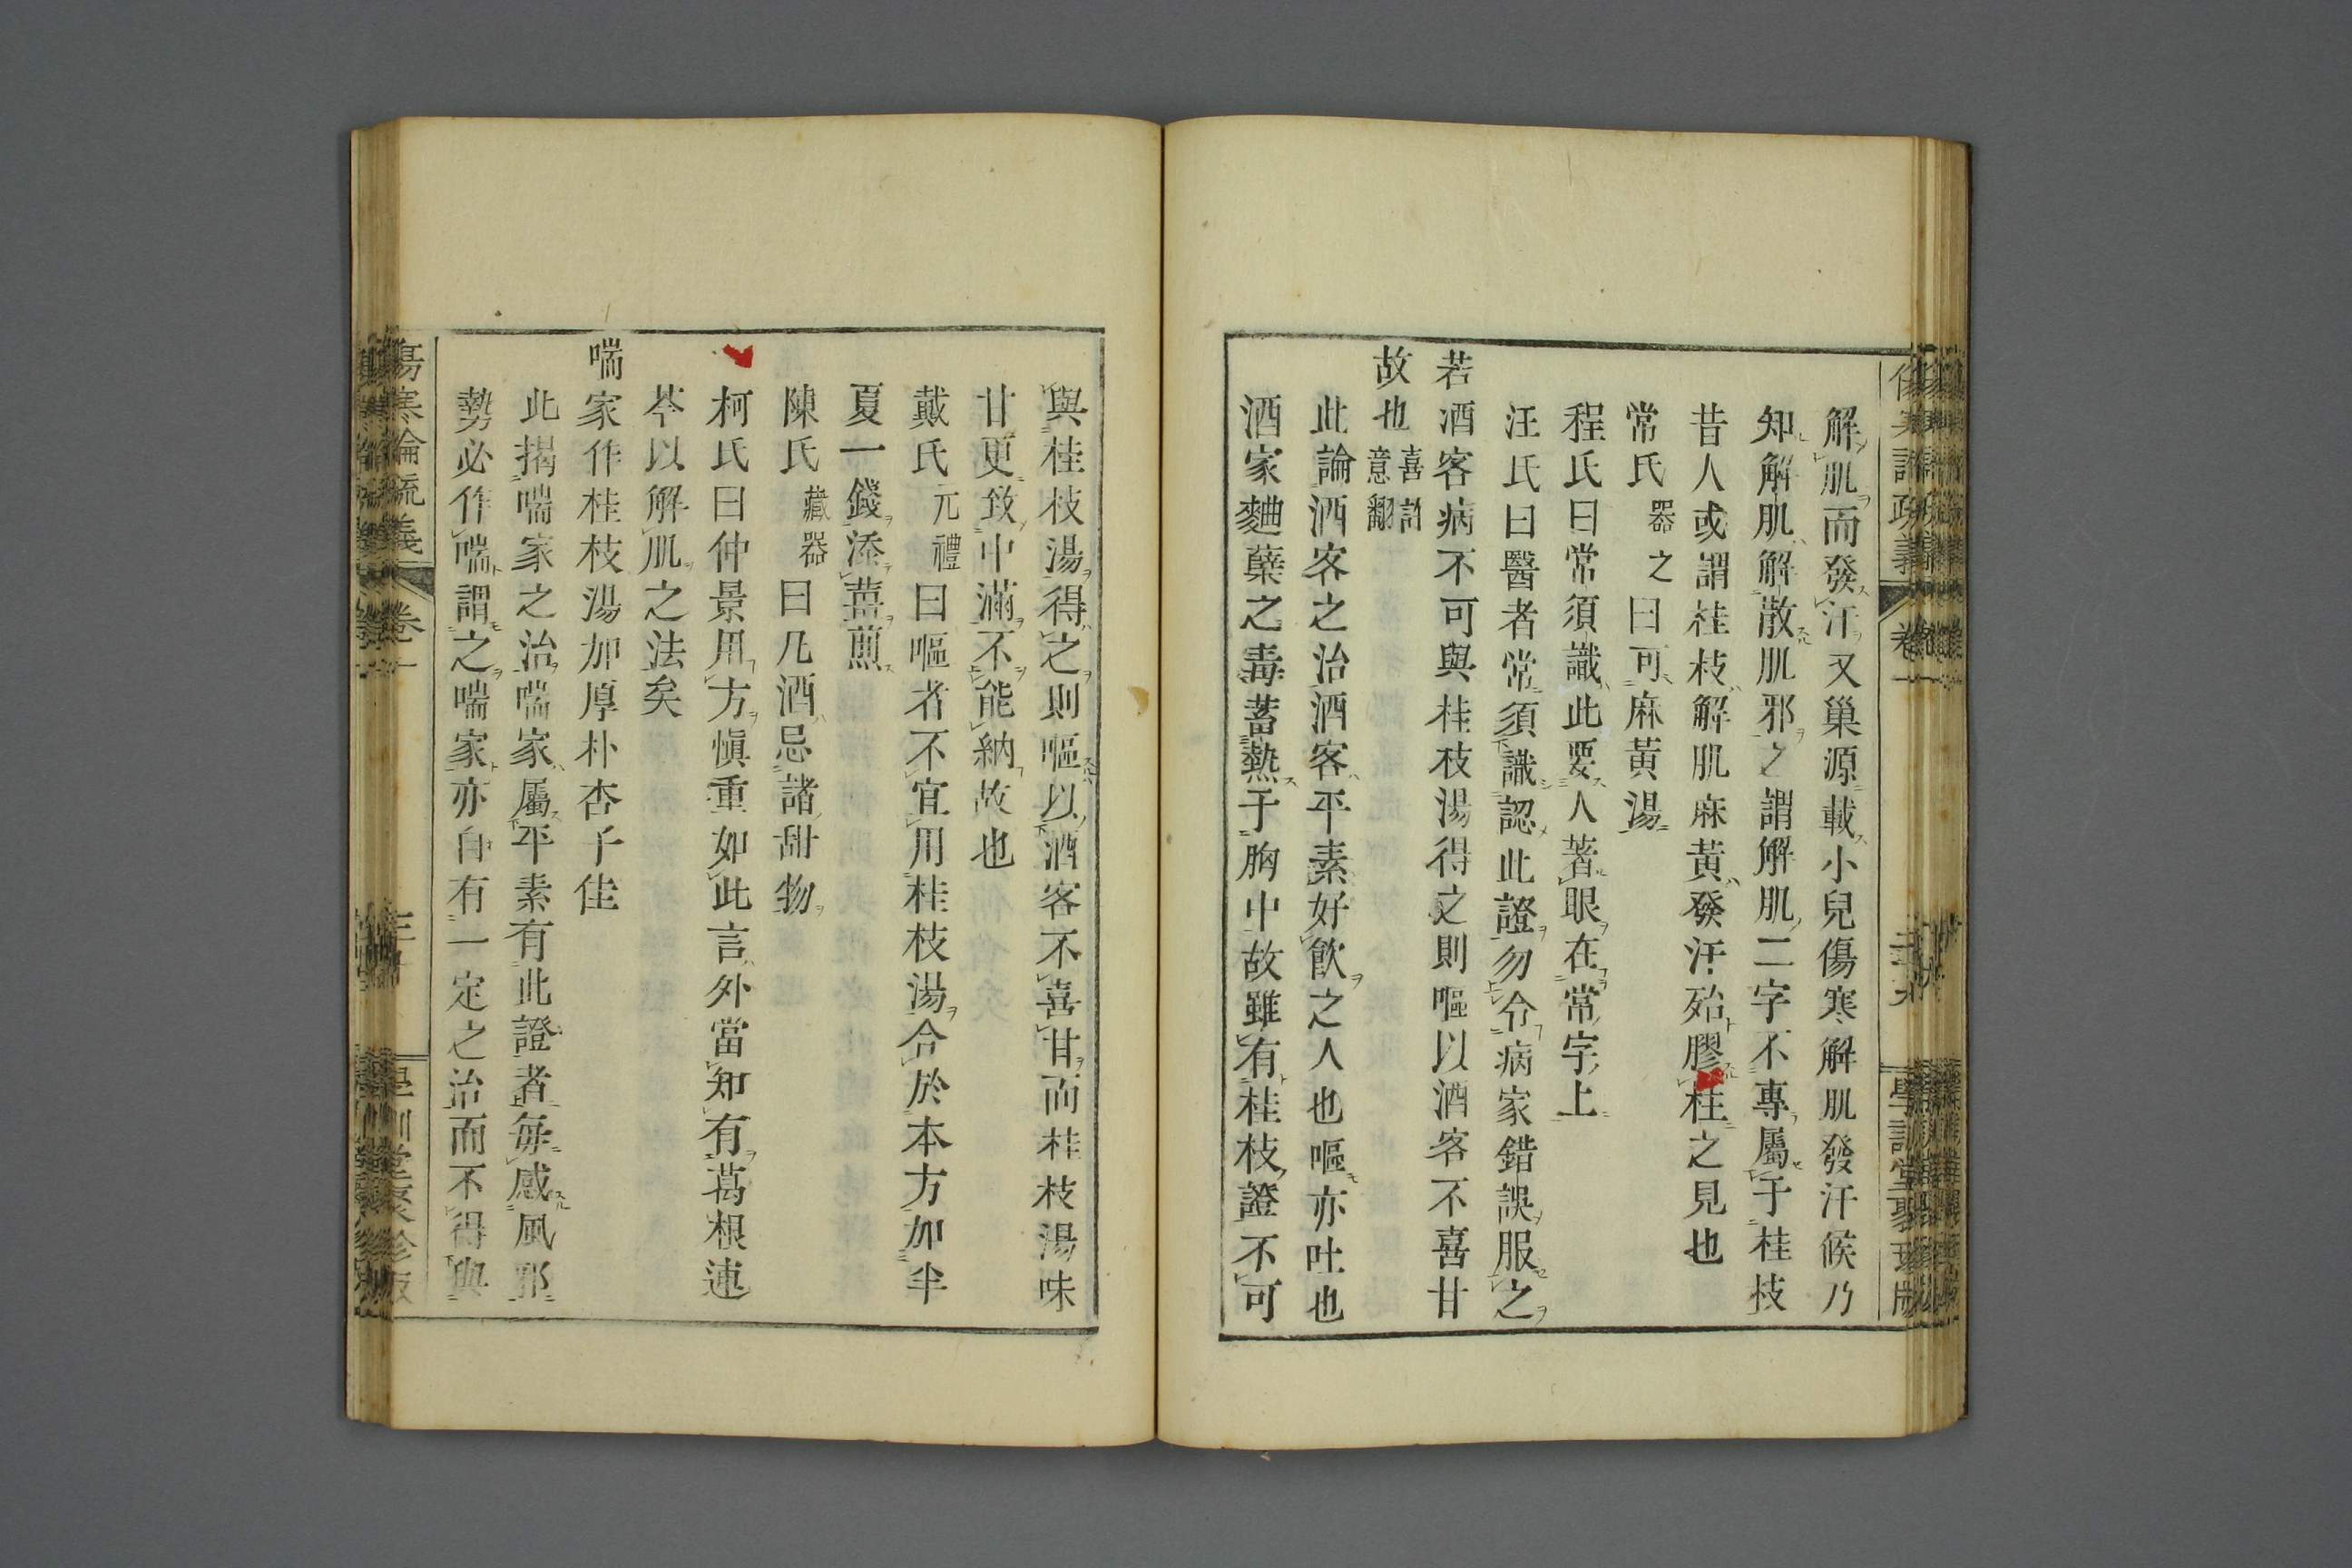 解肌而發汗又巢源載小兒傷寒解肌發汗候乃
知解肌解散肌邪之謂解肌二字不專屬于桂枝
昔人或謂桂枝解肌麻黃發汗殆膠桂之見也
常氏器之曰可麻黃湯
程氏曰常須識此要人著眼在常字上
汪氏曰醫者常須識認此證勿令病家錯誤服之
若酒客病不可與桂枝湯得之則嘔以酒客不喜甘
故也喜訓意翻
此論酒客之治酒客平素好飲之人也嘔亦吐也
酒家麯蘗之毒蓄熱于胸中故雖有桂枝證不可
與桂枝湯得之則嘔以酒客不喜甘而桂枝湯味
甘更致中滿不能納故也
戴氏元禮曰嘔者不宜用桂枝湯合於本方加半
夏一錢添薑煎
陳氏藏器曰凡酒忌諸甜物
柯氏曰仲景用方慎重如此言外當知有葛根連
芩以解肌之法矣
喘家作桂枝湯加厚朴杏子佳
此揭喘家之治喘家屬平素有此證者每感風邪
勢必作喘謂之喘家亦自有一定之治而不得與
傷寒論疏義 卷一